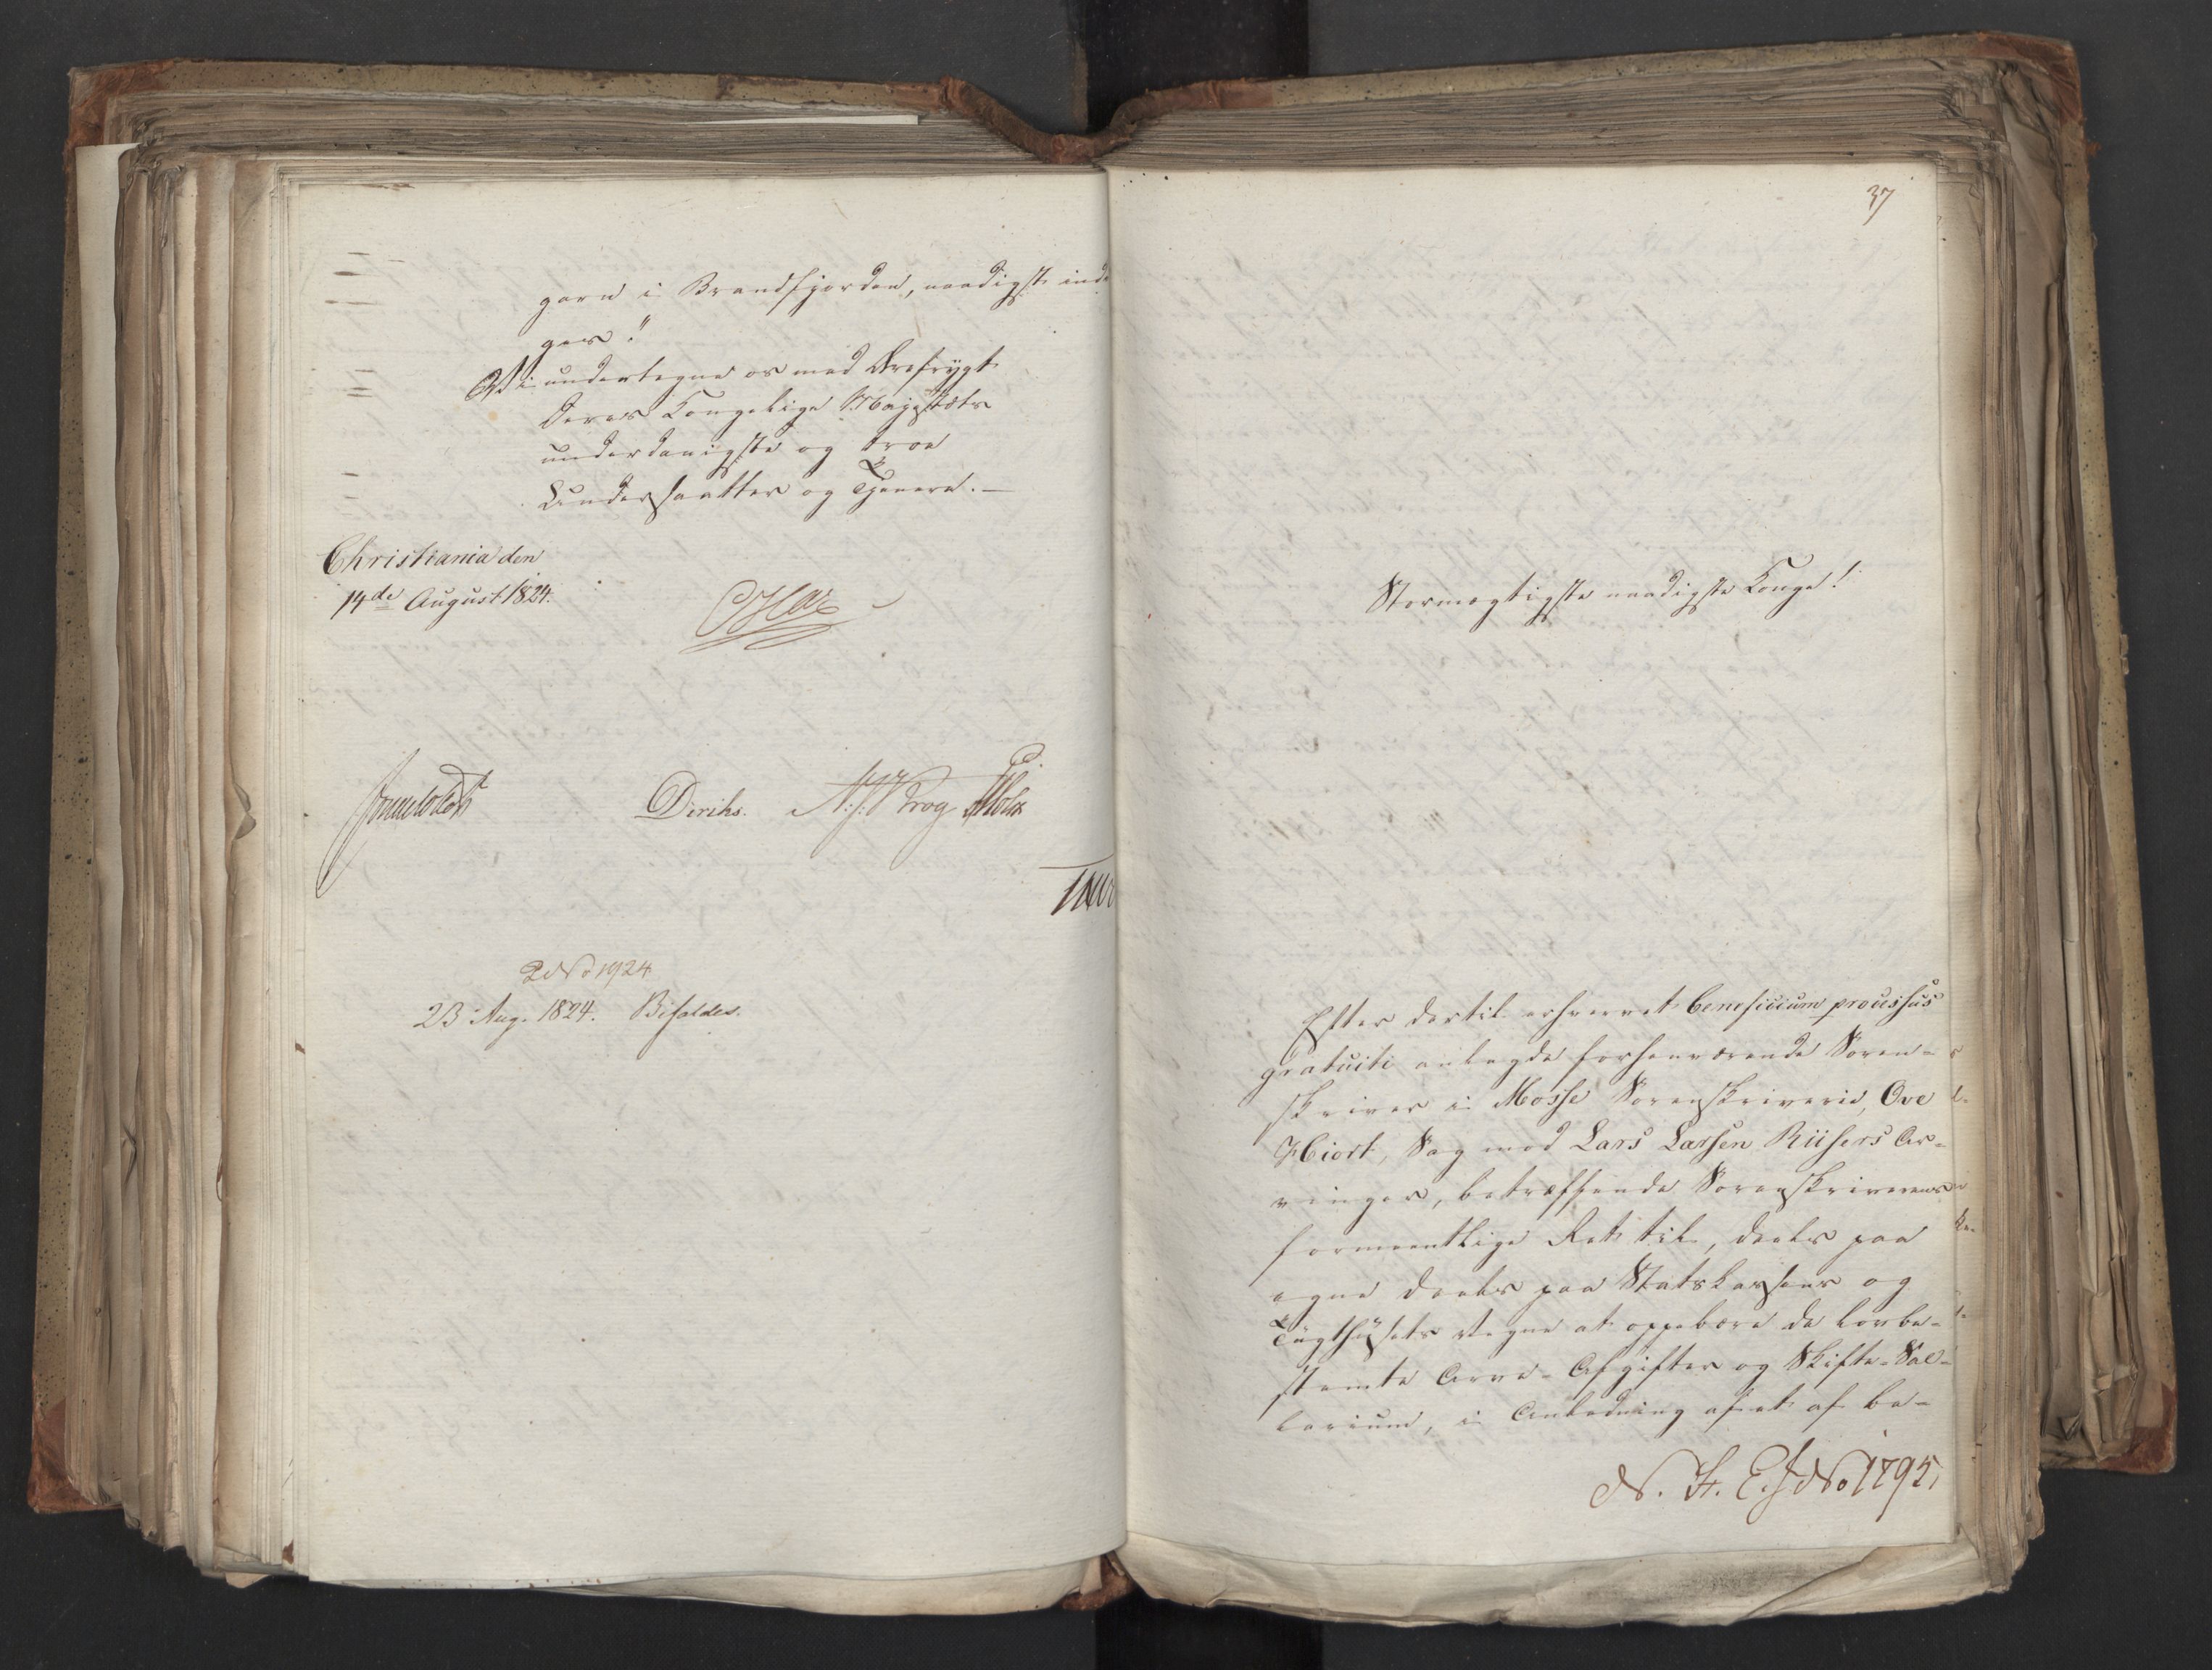 garn i Brandfjorden, naadigst ind
ges."
Vi undertegne os med Ærefrygt
Deres Kongelige Majestæts
underdanigste og troe
Undersaatter og Tjenere. —
Christiania den
14de August 1824.
Diriks.
2 No 1924
23 Aug. 1824. Bifaldes.
37
Stormægtigste naadigste Konge!
Efter dertil erhvervet beneficium processus
gratuiti anlagde forhenværende Soren-
skriver i Mosse Sorenskriverie, Ove
Hiort, Sag mod Lars Larsen Riisers Ar-
vinger, betræffende Sorenskriverens
formeentlige Ret til, deels paa
egne deels paa Statskassens og
Tugthusets Vegne at oppebære de lovbe-
stemte Arve-Afgifter og Skifte-Sal-
larium, i Anledning af et af be-
No 1795